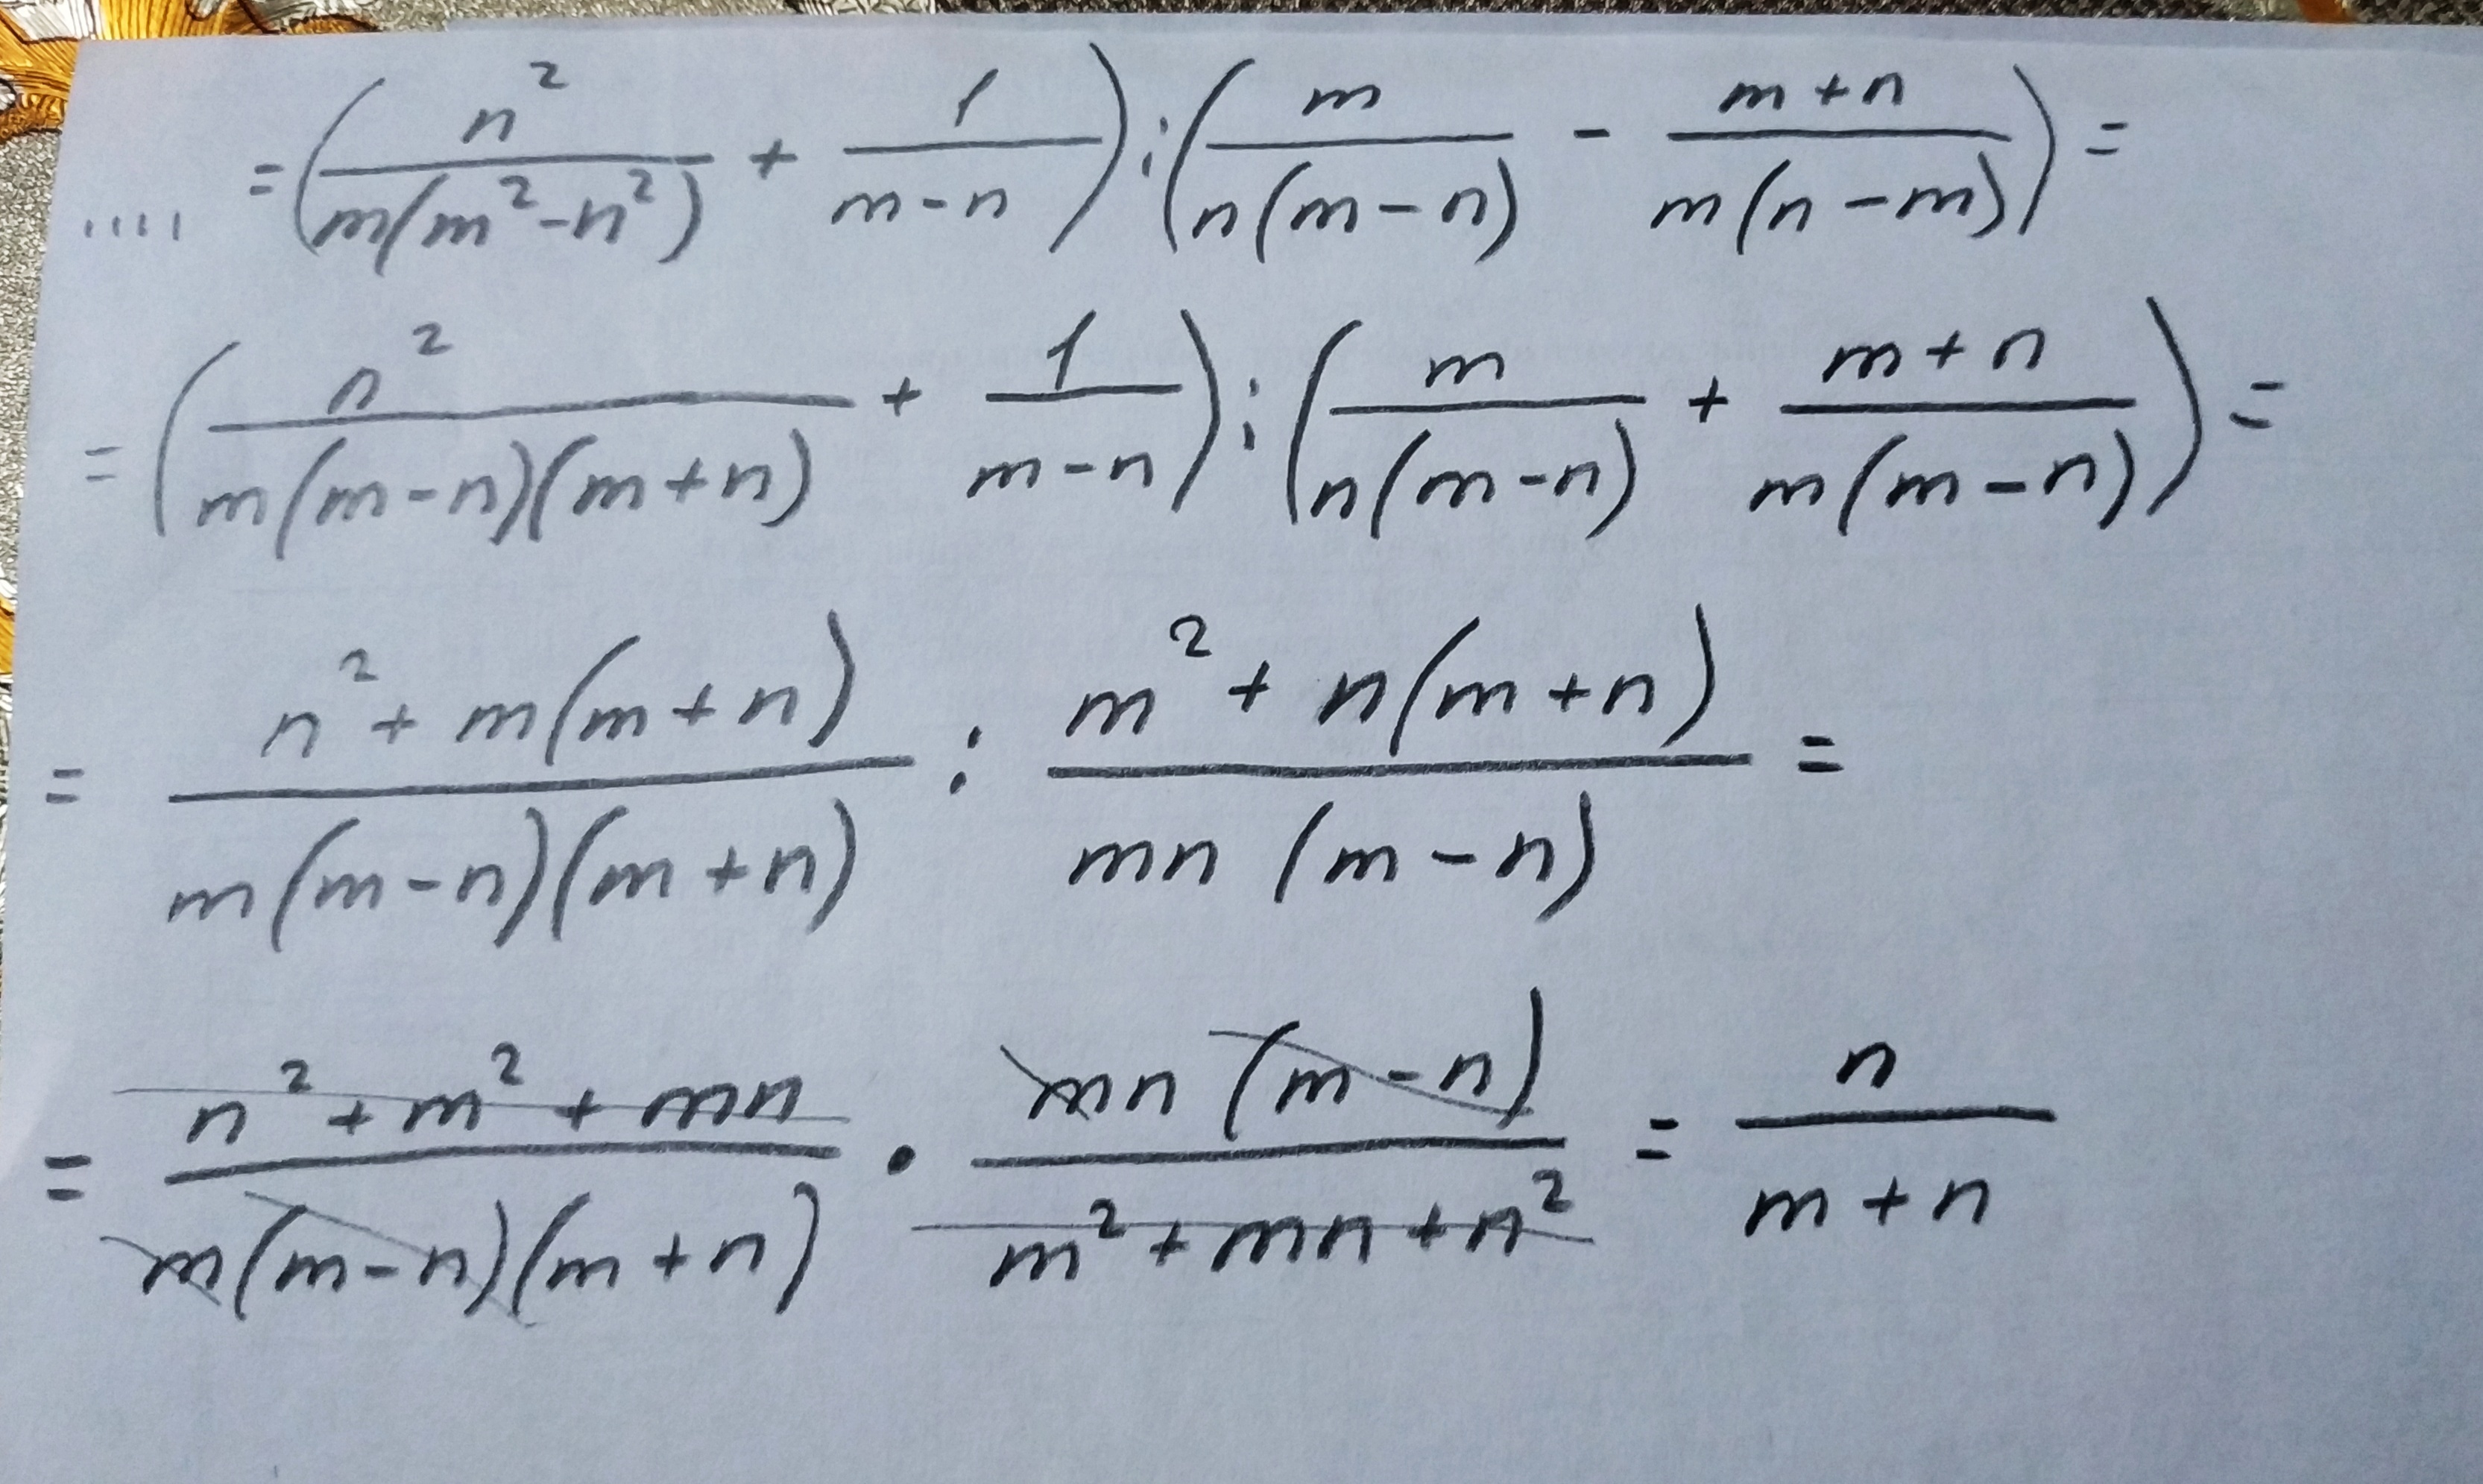 .... = (n²/(m(m²-n²)) + 1/(m-n)) : (m/(n(m-n)) - (m+n)/(m(n-m))) =
= (n²/(m(m-n)(m+n)) + 1/(m-n)) : (m/(n(m-n)) + (m+n)/(m(m-n))) =
= (n²+m(m+n))/(m(m-n)(m+n)) : (m²+n(m+n))/(mn(m-n)) =
= (n²+m²+mn)/(m(m-n)(m+n)) · (mn(m-n))/(m²+mn+n²) = n/(m+n)